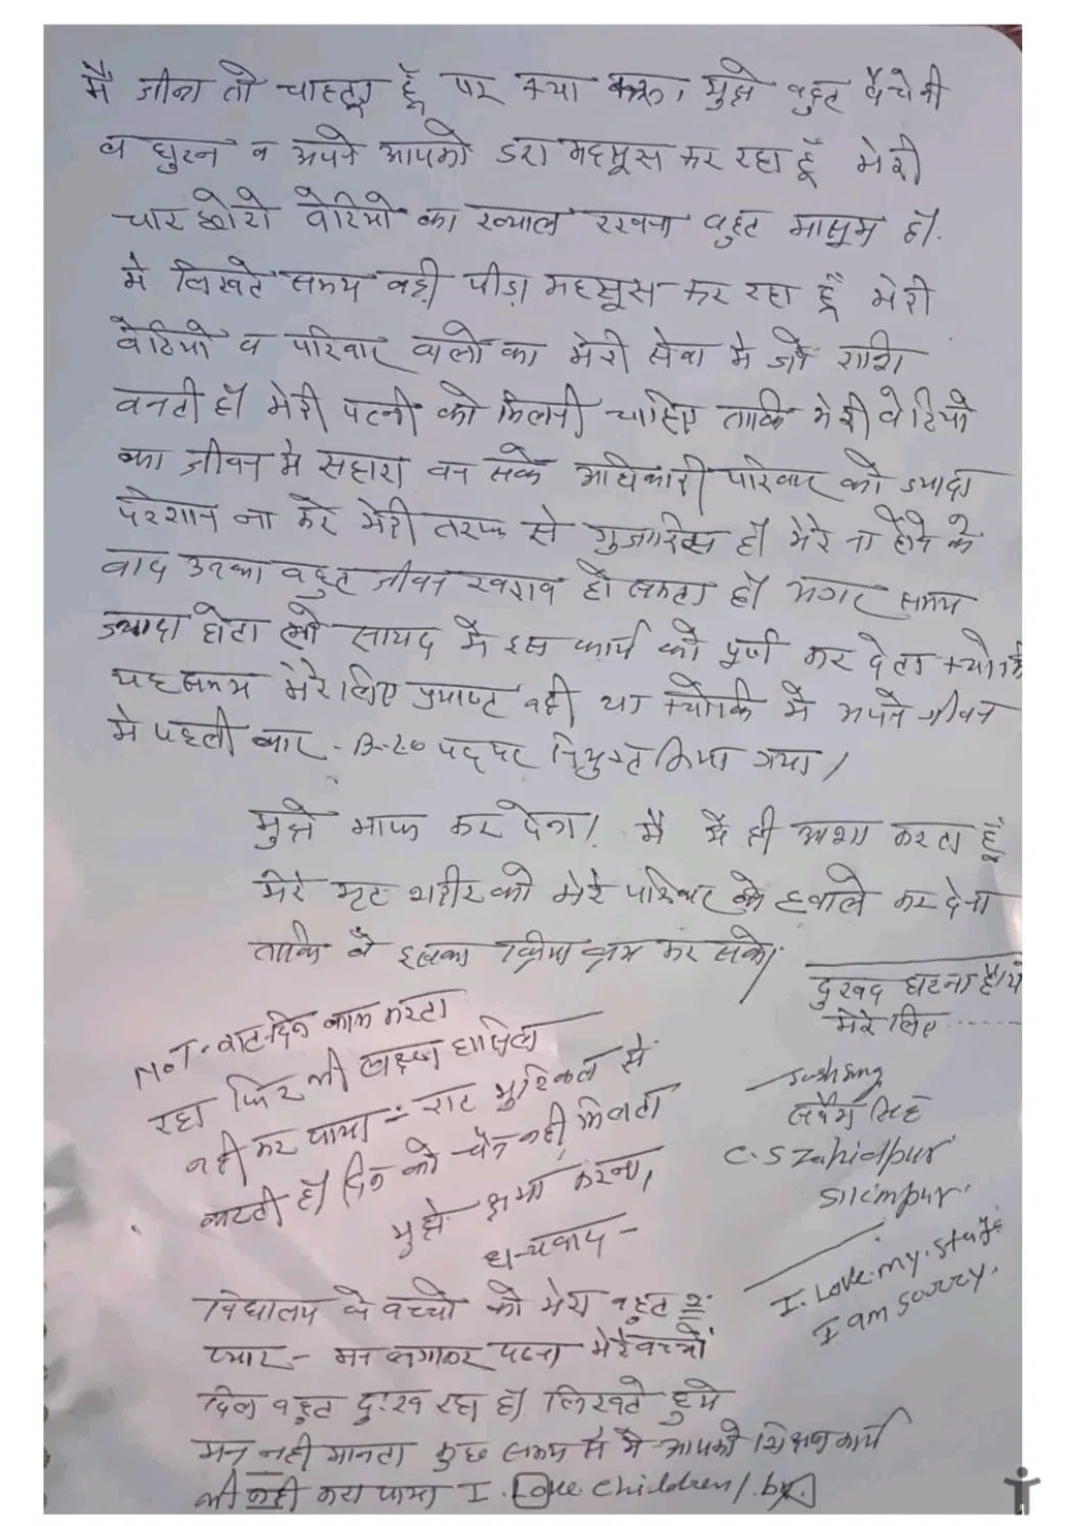 मै जीना तो चाहता हूँ पर क्या करू, मुझे बहुत बैचेनी
व घुटन व अपने आपको डरा महसूस कर रहा हूँ मेरी
चार छोटी बेटियो का ख्याल रखना बहुत मासूम है।
मे लिखते समय बडी पीड़ा महसूस कर रहा हूँ मेरी
बेटियो व परिवार वालो का मेरी सेवा मे जो राशि
बनती है मेरी पत्नी को मिलनी चाहिए ताकि मेरी बेटियो
का जीवन मे सहारा बन सके अधिकारी परिवार को ज्यादा
परेशान ना करे मेरी तरफ से गुजारिस है मेरे ना होने के
बाद उनका बहुत जीवन खराब हो सकता है अगर समय
ज्यादा होता तो सायद मै इस कार्य को पूर्ण कर देता क्योकि
यह समय मेरे लिए प्रयाप्ट नही था क्योकि मे अपने जीवन
मे पहली बार - B.L.O पद पर नियुक्त किया गया।
मुझे माफ कर देना। मै ये ही आशा करता हूँ
मेरे मृट शरीर को मेरे परिवार के हवाले कर देना
ताकि वे इसका क्रिया क्रम कर सके।
दुखद घटना है ये
मेरे लिए .....
N.T. रात-दिन काम करता
रहा फिर भी लक्ष्य हासिल
नही कर पाया - रात मुश्किल से
कटती है। दिन को चैन नही मिलता
मुझे क्षमा करना,
धन्यवाद -
सिंह
C.S Zahidpur
silempur.
I. Love. my. stafe
I am sorry.
विधालय के बच्चो को मेरा बहुत २
प्यार - मन लगाकर पढना मेरे बच्चों
दिल बहुत दुःख रहा है। लिखते हुये
मन नही मानता कुछ समय से मै आपको शिक्षण कार्य
भी नही करा पाया I. Love. children/. by.